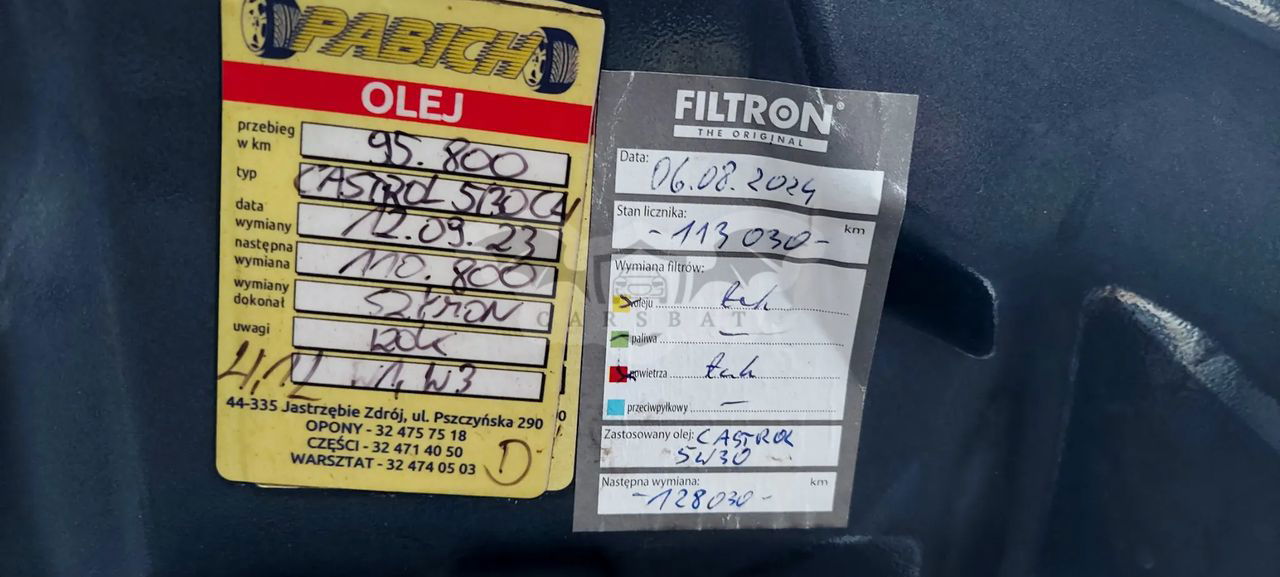 PABICH
OLEJ
przebieg w km 95.800
typ CASTROL 5W30
data wymiany 12.09.23
następna wymiana 110.800
wymiany dokonał SZYMON
uwagi
4,1L W1, W3
44-335 Jastrzębie Zdrój, ul. Pszczyńska 290
OPONY - 32 475 75 18
CZĘŚCI - 32 471 40 50
WARSZTAT - 32 474 05 03
D
FILTRON®
THE ORIGINAL
Data: 06.08.2024
Stan licznika:
-113 030- km
Wymiana filtrów:
oleju tak
paliwa —
powietrza tak
przeciwpyłkowy —
Zastosowany olej: CASTROL
5W30
Następna wymiana: km
-128030-
CARSBAT